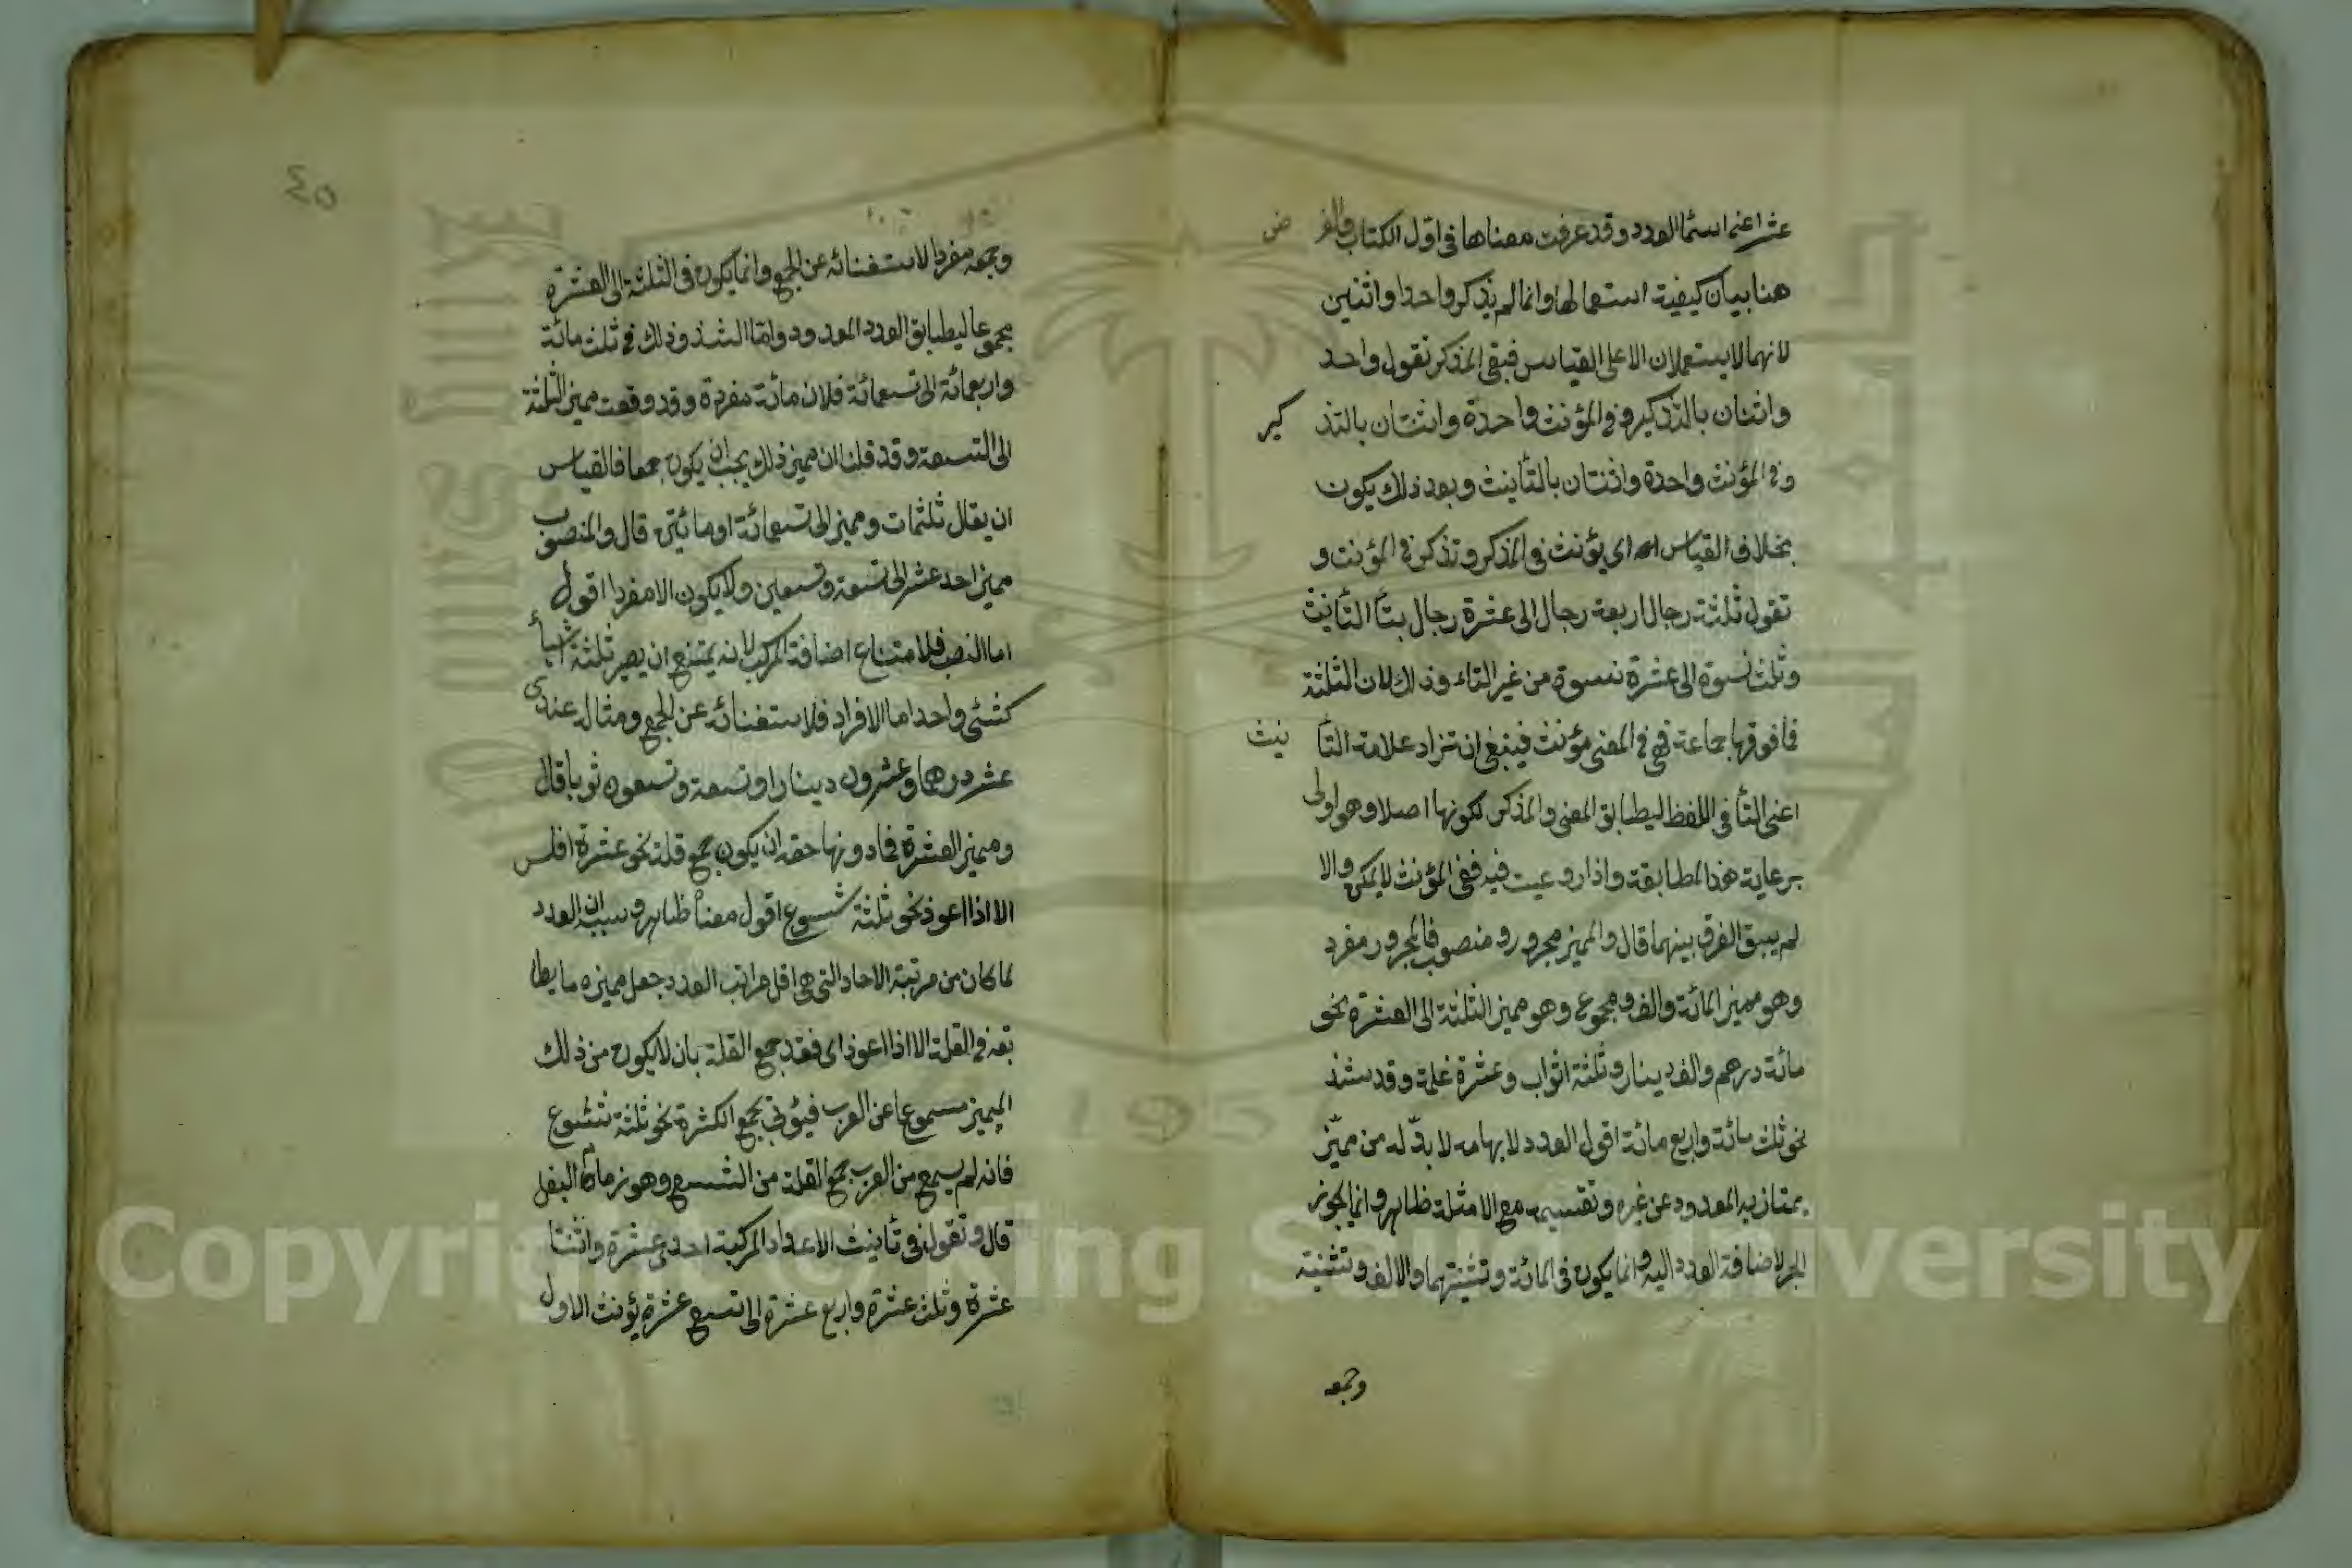 عشر اعنى اسما العدد وقد عرفت معناها فى اول الكتاب والغرض
هنا بيان كيفية استعمالها وانما لم يذكر واحدا واثنين
لانهما لا يستعملان الا على القياس فبقى المذكر تقول واحد
واثنان بالتذكير وفى المؤنث واحدة واثنتان بالتذكير
وفى المؤنث واحدة واثنتان بالتأنيث وبعد ذلك يكون
بخلاف القياس اى يؤنث فى المذكر وتذكر فى المؤنث و
تقول ثلثة رجال اربعة رجال الى عشرة رجال بتأ التأنيث
وثلث نسوة الى عشرة نسوة من غير التاء وذلك لان الثلثة
فما فوقها جماعة فهى فى المعنى مؤنث فينبغى ان تزاد علامة التأنيث
اعنى التأ فى اللفظ ليطابق المعنى والمذكر لكونها اصلا وهو اولى
برعاية هذا المطابقة واذا روعيت فيه ففى المؤنث لا يمكن والا
لم يبق الفرق بينهما قال والمميز مجرور ومنصوب فالمجرور مفرد
وهو مميز المائة والف ومجموع وهو مميز الثلثة الى العشرة نحو
مائة درهم والف دينار وثلثة اثواب وعشرة غلمة وقد شذ
نحو ثلث مائة واربع مائة اقول العدد لابهامه لا بدّ له من مميّز
يمتاز به المعدود عن غيره وتقسيمه مع الامثلة ظاهر وانما يجوز
الجر لاضافة العدد اليه وانما يكون فى المائة وتثنيتهما والالف وتثنيته
وجمعه
٤٥
وجمعه مفردا لاستغنائه عن الجمع وانما يكون فى الثلثة الى العشرة
مجموعا ليطابق العدد المعدود واما الشذوذ لك فى ثلث مائة
واربعمائة الى تسعمائة فلان مائة مفردة وقد وقعت مميز الثلثة
الى التسعة وقد قلنا ان مميز ذلك يجب ان يكون جمعا فالقياس
ان يقال ثلثمات ومميز الى تسعمائة او مائتى قال والمنصوب
مميز احد عشر الى تسعة وتسعين ولا يكون الا مفردا اقول
اما النصب فلامتناع اضافة المركب لانه يمتنع ان يصير ثلثة اشيأ
كشئى واحد اما الافراد فلاستغنائه عن الجمع ومثاله عندى
عشر درهما وعشرون دينارا وتسعة وتسعون ثوبا قال
ومميز العشرة فما دونها حقه ان يكون جمع قلة نحو عشرة افلس
الا اذا اعوذ نحو ثلثة شسوع اقول معناه ظاهر وسببه ان العدد
لما كان من مرتبة الاحاد التى هى اقل مراتب العدد جعل مميزه ما يطا
بقه فى القلة الا اذا اعوذ اى فقد جمع القلة بان لا يكون من ذلك
المميز مسموعا عن العرب فيؤتى بجمع الكثرة نحو ثلثة شسوع
فانه لم يسمع من العرب جمع القلة من الشسع وهو زمام النعل
قال وتقول فى تأنيث الاعداد المركبة احدى عشرة واثنتا
عشرة وثلث عشرة واربع عشرة الى تسع عشرة يؤنث الاول
Copyright © King Saud University
1957